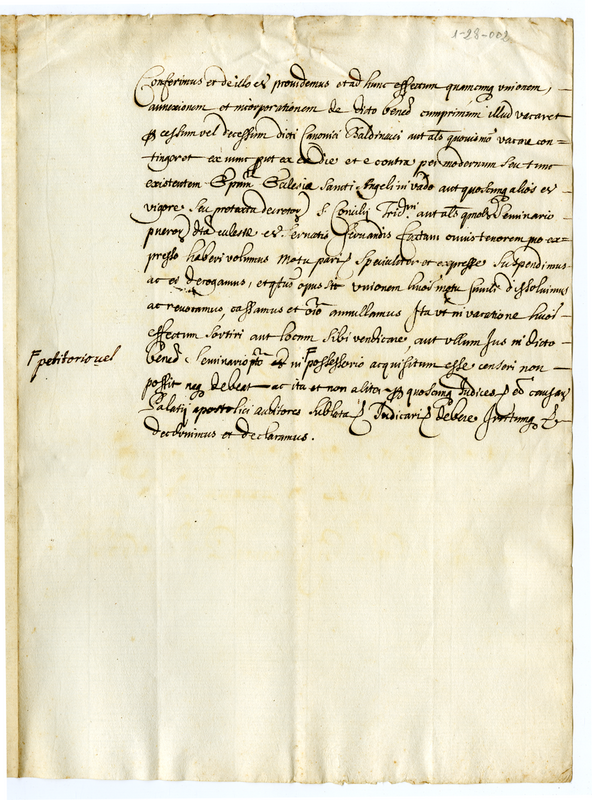 1-28-002
Conferimus et de illo et providemus et ad hunc effectum quamcumq unionem,
annexionem et incorporationem de dicto benef cum primum illud vacaret
p cessum vel decessum dicti Canonici Baldinucci aut als quovismo vacare con=
tingeret ex nunc put ex ea die et e contra per modernum seu tunc
existentem Ecclesiæ Santi Angeli in Vado aut quoscumq alios et
vigore seu prætextu decretor S. Concilij Trid. aut als Seminario
pueror dta ecclesiæ Servatis Servandis factam cuius tenorem pro ex=
presso haberi volumus motu pari specialiter et expresse suspendimus
ac ei derogamus, et qtus opus sit unionem huiusmodi motu simili dissolvimus
ac revocamus, cassamus et oio annullamus Ita ut in vacatione huiusmodi
effectum sortiri aut locum sibi vendicare, aut ullum Jus in dicto
petitorio vel
benef Seminario pto in possessorio acquisitum esse censeri non
possit neq debeat ac ita et non aliter p quoscumq Judices et causar
Palatij apostolici auditores sublata Judicari debere Irritumq
decernimus et declaramus.